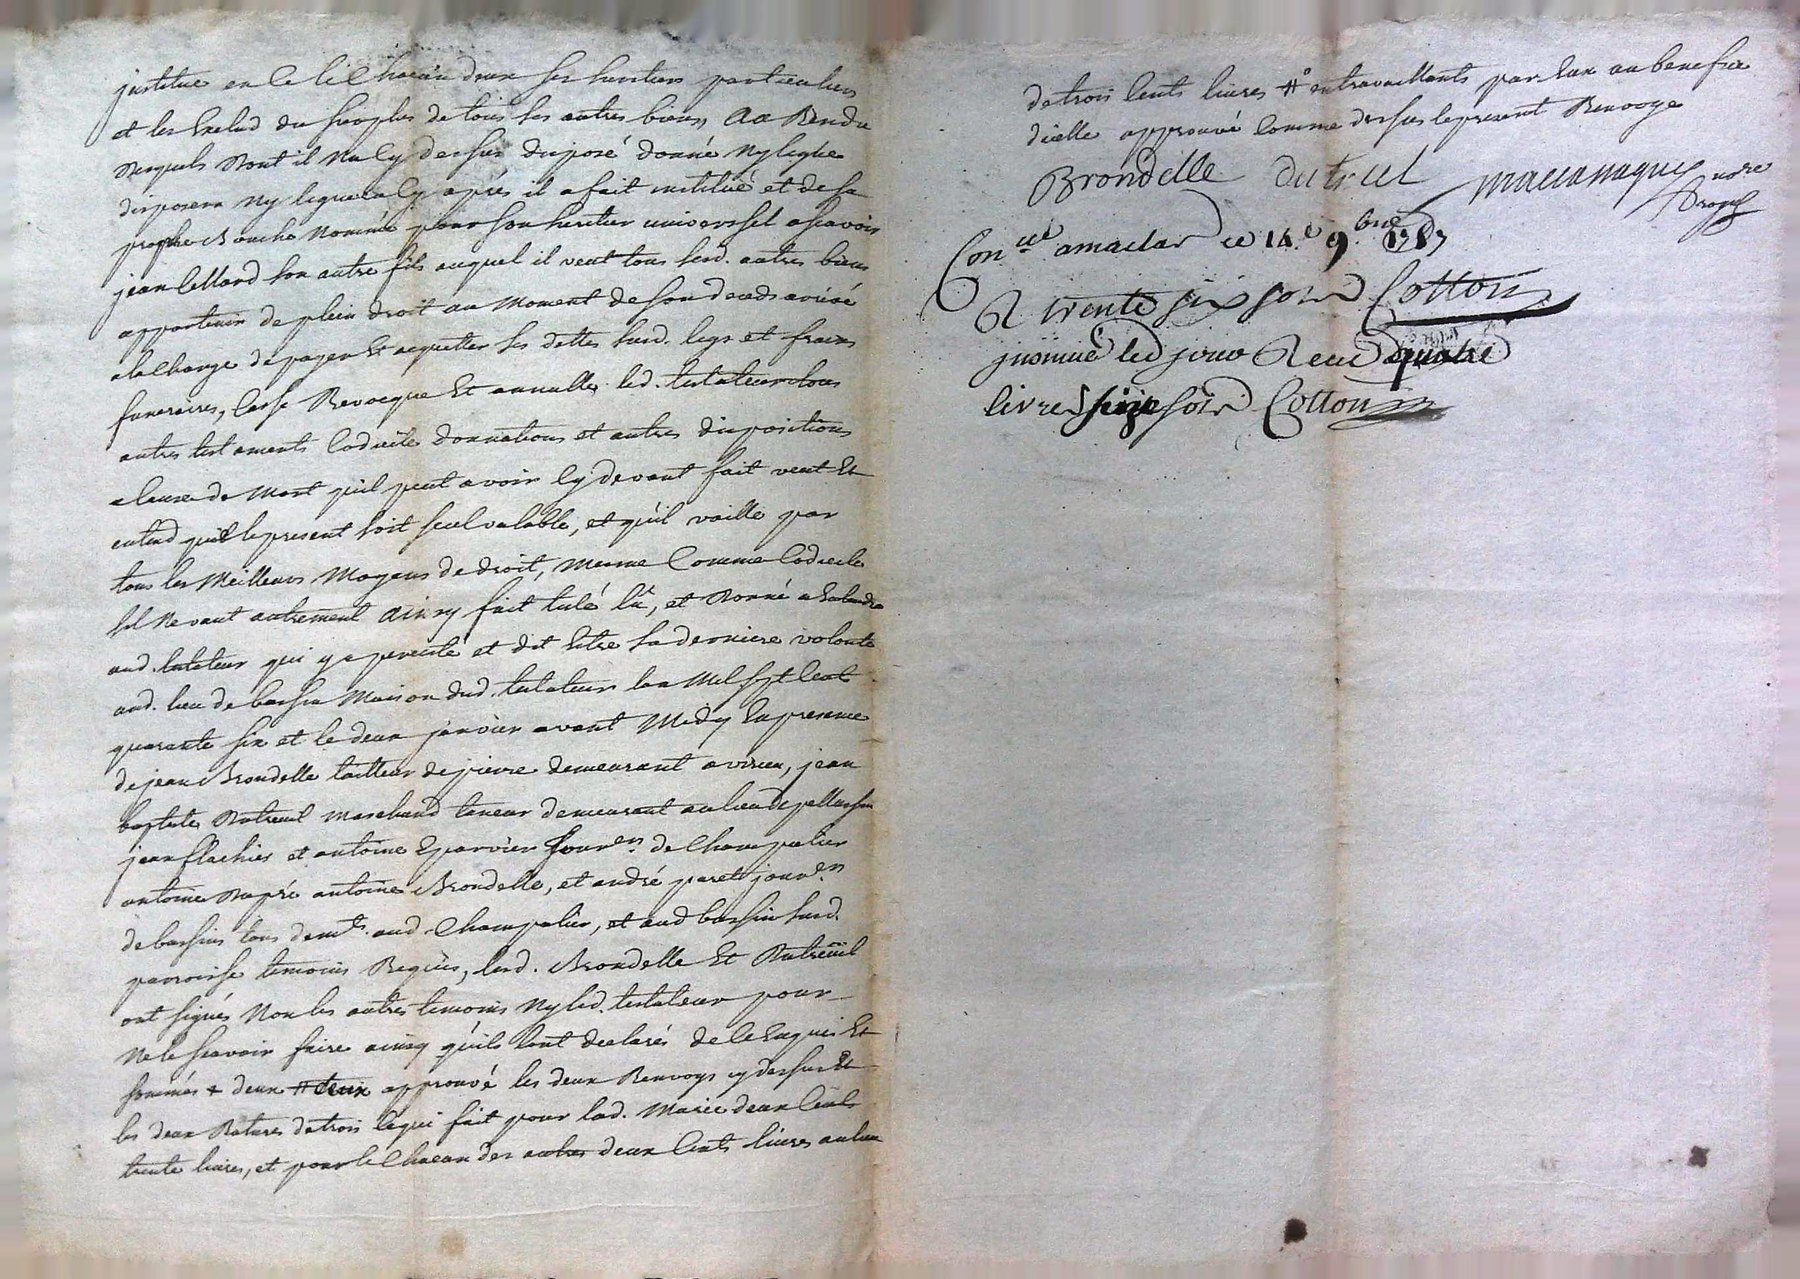 justitue en ce le chacun deux ses heritiers particuliers
et les exclud du surplus de tous ses autres biens Aa Residu
desquels dont il na cy dessus disposé donné ny legué
disposera ny leguera cy apres il a fait institué et de sa
propre Bouche nommé pour son heritier universsel ascavoir
jean son autre fils auquel il veut tous sesd. autres biens
appartenir de plein droit au moment de son deceds arrivé
ala charge de payer Et acquitter ses dettes susd. legs et fraix
funeraires, Casse Revocque Et annulle led. testateur tous
autres testaments Codicile donnations et autres dispositions
a Cause de Mort qu'il peut avoir Cy devant fait veut Et
entend que le present soit seul valable, et qu'il vaille par
tous les Meilleurs Moyens de droit, mesme Comme Codicile
sil ne vaut autrement ainsy fait lu, et donné a
aud. testateur qui y a persisté et dit Estre sa derniere volonté
aud. lieu de bassin Maison dud. testateur lan Mil sept Cent
quarante six et le deux janvier avant Midy En presence
de jean Brondelle tailleur de pierre demeurant a virieu, jean
baptiste Dutreuil marchand taneur demeurant au lieu de pellussin
jean flachier et antoine Eparvier jour.en de Champalier
antoine Dupré antoine Brondelle, et andré paret jour.en
de bassin tous dem.ts aud. Champalier, et aud bassin susd.
parroisse temoins Requis, lesd. Brondelle Et Dutreüil
ont signés Non les autres temoins Ny led. testateur pour
Ne le scavoir faire ainsy qu'ils ont declarés de ce Enquis Et
sommés + deux # deux approuvé les deux Renvoys cy dessus Et
les deux Ratures de trois ce qui fait pour lad. Marie deux Cents
trente livres, et pour le Chacun des autres deux Cents livres au lieu
de trois Cents livres # en travaillants par Eux au benefice
dicelle approuvé Comme dessus le present Renvoye
Brondelle dutreul maccanaques no.re
Royal
Con.llé amaclar ce 14.e 9.bre 1787
R trente six sols Cotton
jnsinué led jour Receu quatre
livres seize sols Cotton